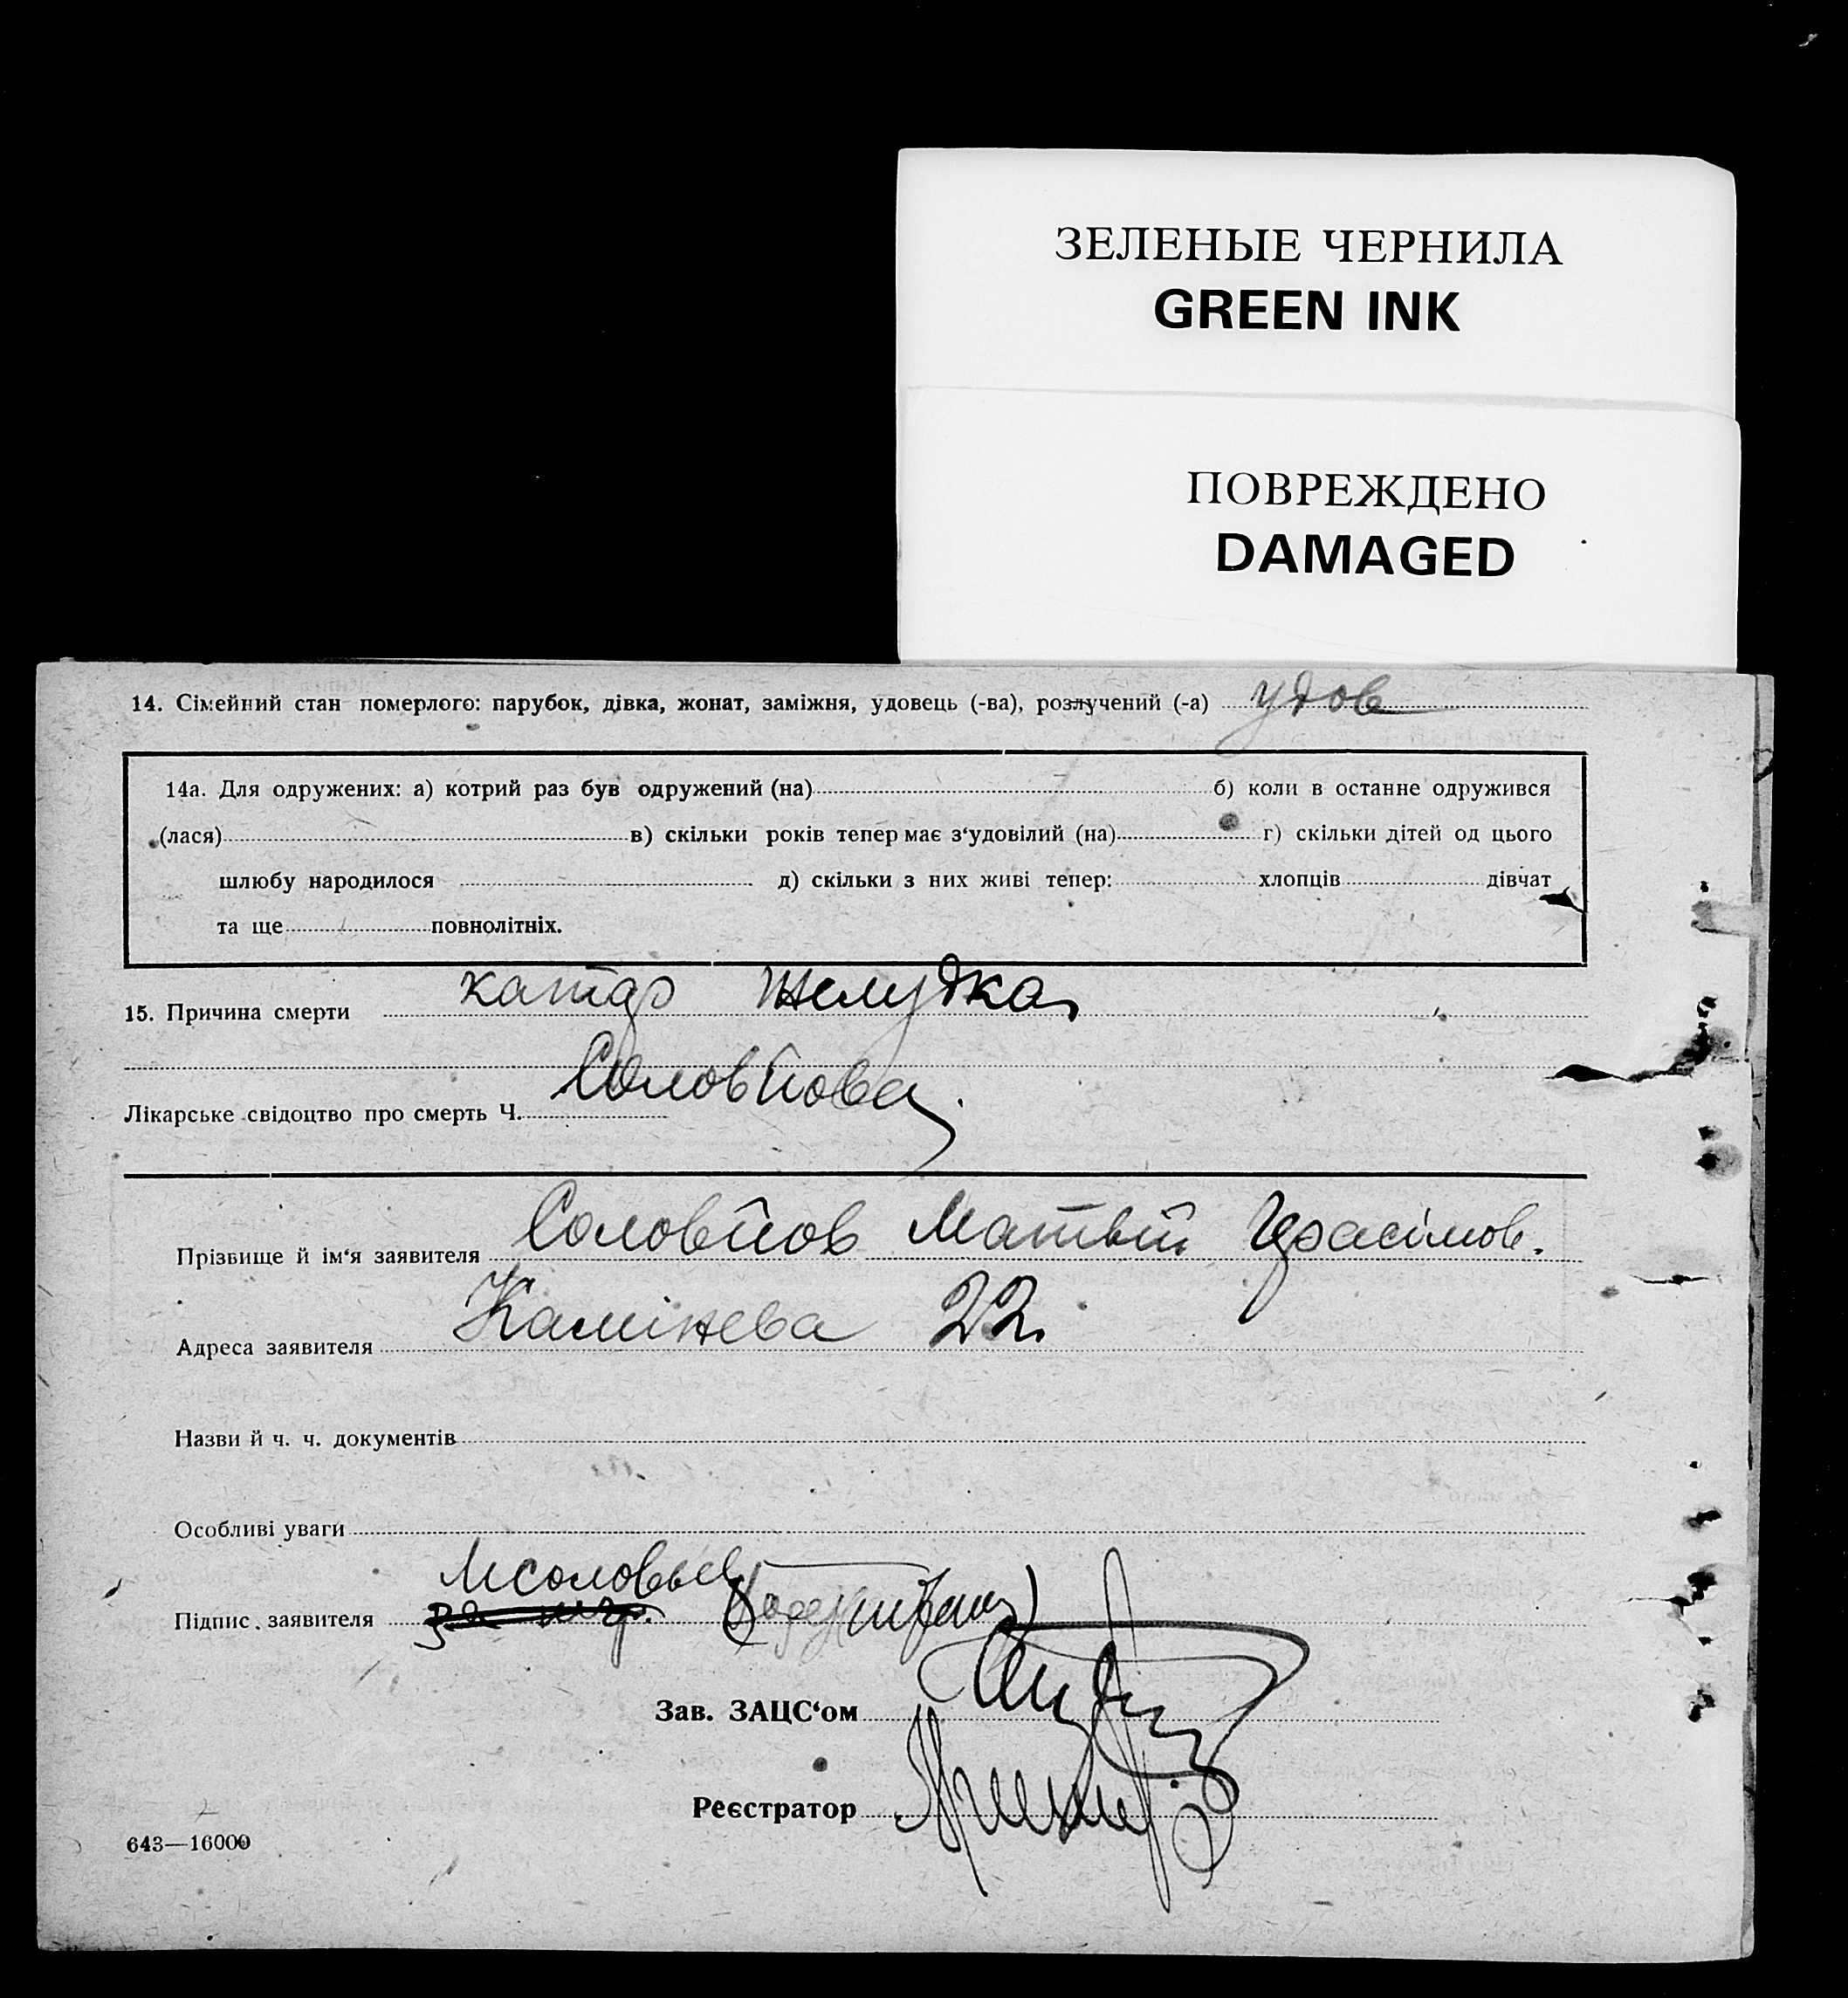 ЗЕЛЕНЫЕ ЧЕРНИЛА
GREEN INK
ПОВРЕЖДЕНО
DAMAGED
14. Сімейний стан померлого: парубок, дівка, жонат, заміжня, удовець (-ва), розлучений (-а) удов
14а. Для одружених: а) котрий раз був одружений (на) б) коли в останне одружився
(лася) в) скільки років тепер має з‘удовілий (на) г) скільки дітей од цього
шлюбу народилося д) скільки з них живі тепер: хлопців дівчат
та ще повнолітніх.
15. Причина смерти катар желудка
Соловйова
Лікарське свідоцтво про смерть Ч.
Прізвище й ім‘я заявителя Соловйов Матвій Герасімов.
Адреса заявителя Камінева 22
Назви й ч. ч. документів
Особливі уваги
МСоловьев
Підпис заявителя
Зав. ЗАЦС‘ом
Реєстратор
643—16000